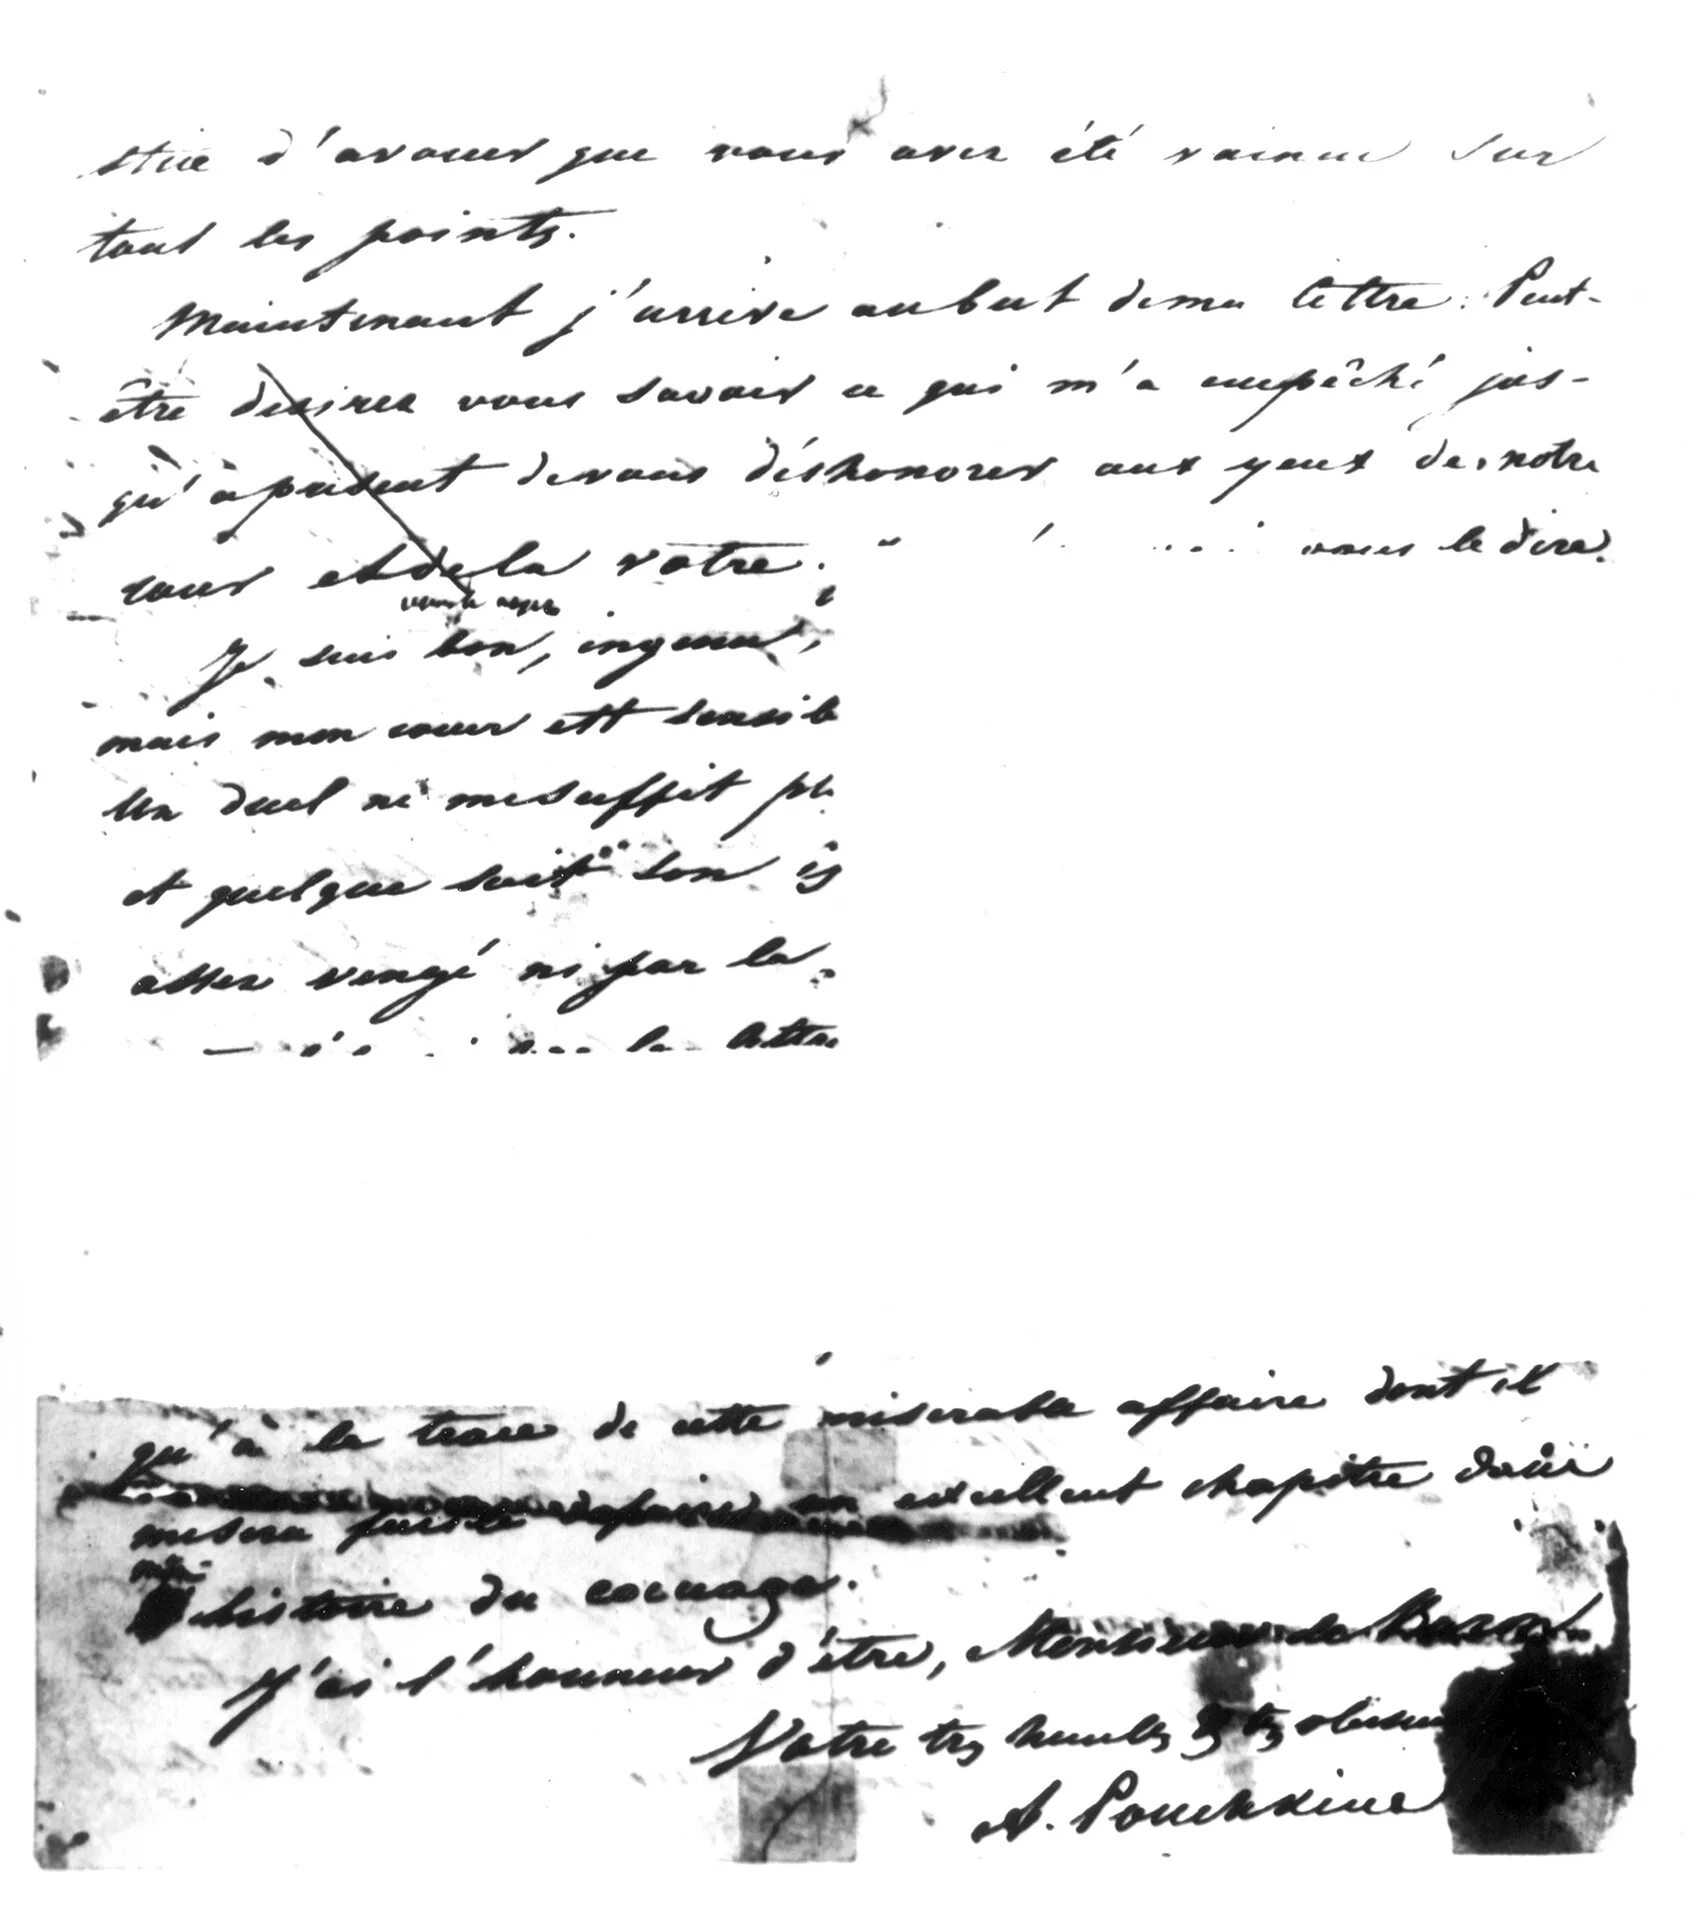 stice d'avouer que vous avez été vaincu sur
tous les points.
Maintenant j'arrive au but de ma lettre. Peut-
être desirez vous savoir ce qui m'a empêché jus-
qu'à présent de vous déshonorer aux yeux de notre
cour et de la votre. vous le dire.
Je suis bon, ingenu,
mais mon cœur est sensib
Un duel ne me suffit pl
et quelque soit son is
assez vengé ni par la
la lettre
qu'à la trace de cette miserable affaire dont il
me sera facile de faire un excellent chapitre dans
mon histoire du cocuage.
J'ai l'honneur d'être, Monsieur le Baron
Votre très humble et très obeissan
A. Pouchkine